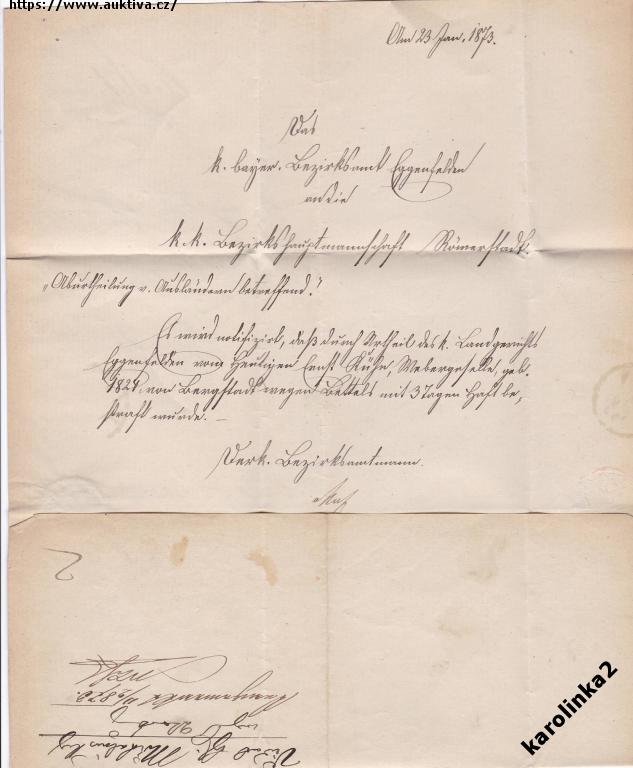 https://www.auktiva.cz/
Am 23 Jan. 1873.
Das
k. bayer. Bezirksamt Eggenfelden
an die
k. k. Bezirkshauptmannschaft Römerstadt.
„Aburtheilung v. Ausländern betreffend."
Es wird notifizirt, daß durch Urtheil des k. Landgerichts
Eggenfelden vom Heutigen Ernst Kühn, Webergeselle, geb.
1824 von Bergstadt wegen Bettels mit 3 Tagen Haft be-
straft wurde. —
Der k. Bezirksamtmann.
karolinka2